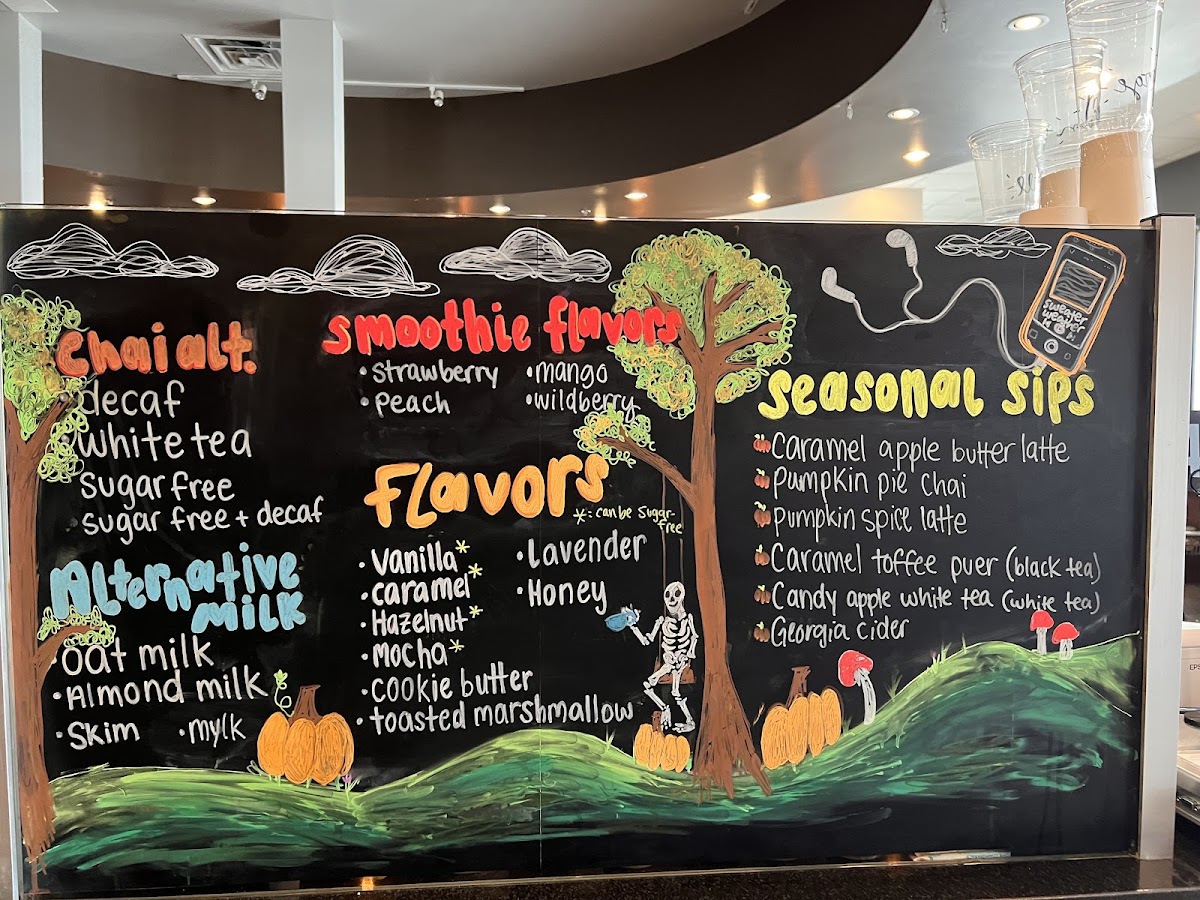 Chai alt.
decaf
white tea
sugar free
sugar free + decaf
Alternative
milk
• oat milk
• Almond milk
• skim • mylk
smoothie flavors
• strawberry • mango
• peach • wildberry
Flavors
* = can be sugar-
free
• Vanilla*
• caramel*
• Hazelnut*
• Mocha*
• cookie butter
• toasted marshmallow
• Lavender
• Honey
sweater
weather
seasonal sips
Caramel apple butter latte
Pumpkin pie chai
pumpkin spice latte
Caramel toffee puer (black tea)
Candy apple white tea (white tea)
Georgia cider